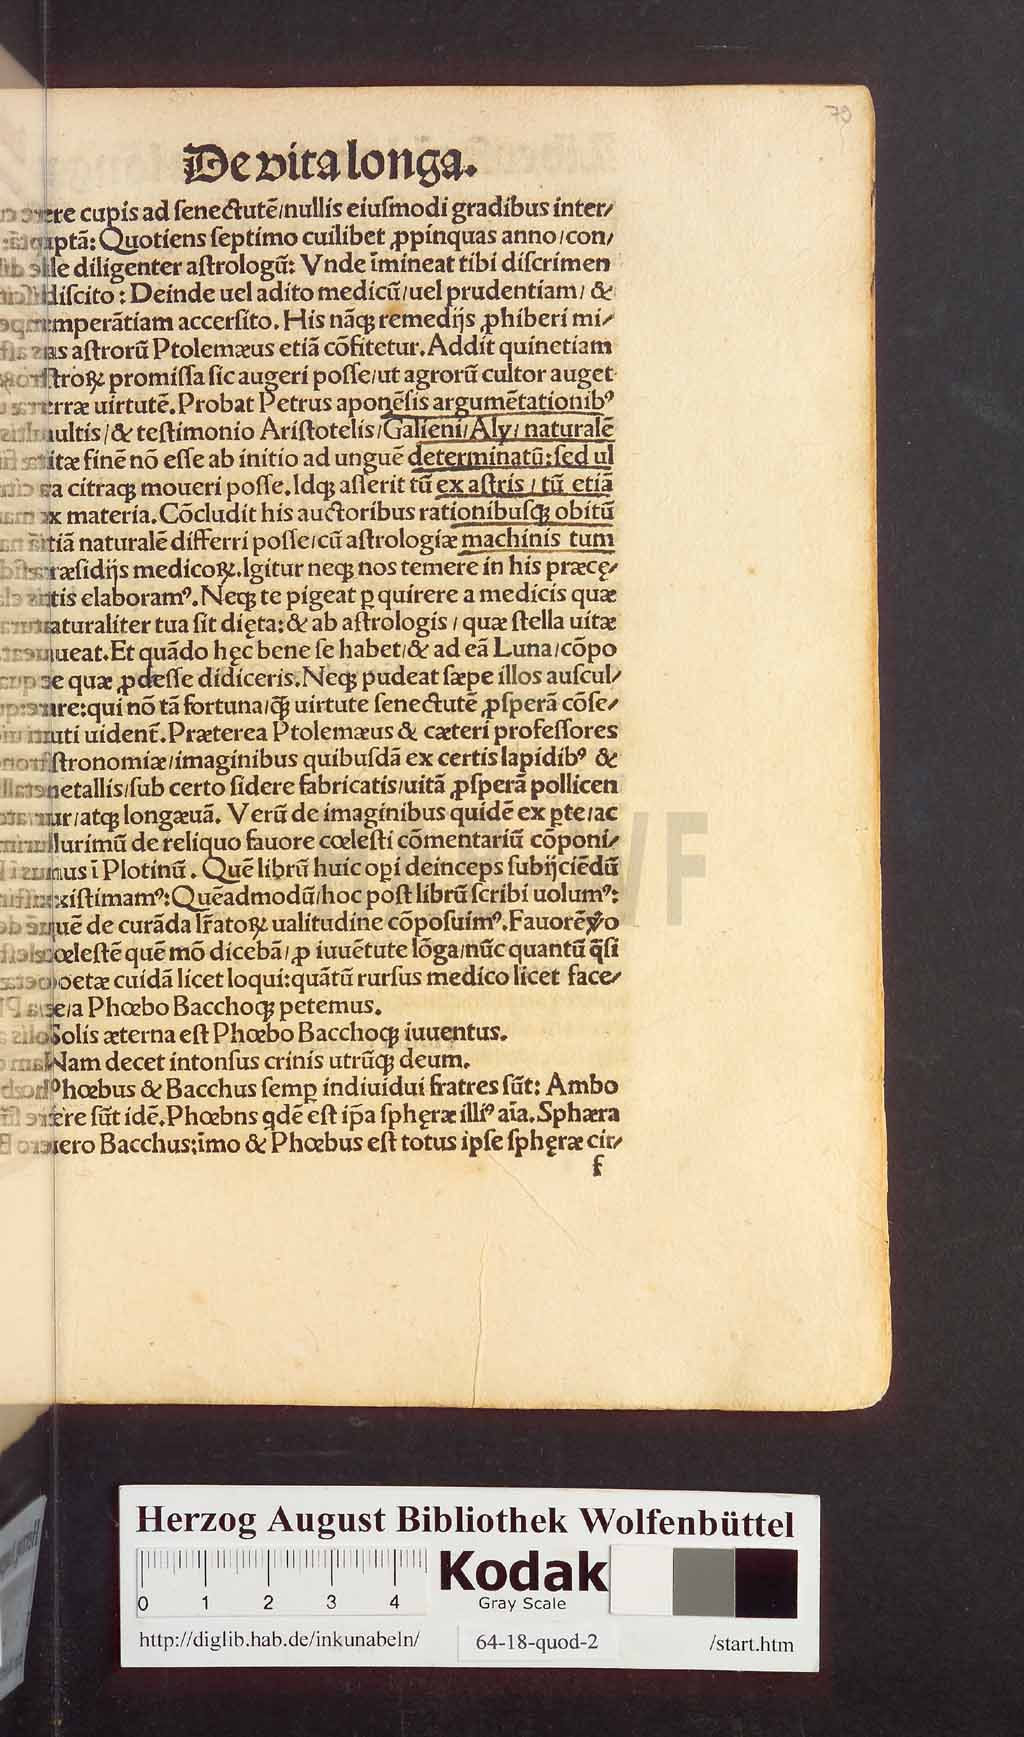 79
De vita longa.
ere cupis ad ſenectutē/nullis eiuſmodi gradibus inter/
ptā: Quotiens ſeptimo cuilibet ꝓpinquas anno/con/
le diligenter aſtrologū: Vnde īmineat tibi diſcrimen
diſcito: Deinde uel adito medicū/uel prudentiam/ &
mperātiam accerſito. His nāꝗ remedijs ꝓhiberi mi/
as aſtrorū Ptolemæus etiā cōfitetur. Addit quinetiam
ſtroꝝ promiſſa ſic augeri poſſe/ut agrorū cultor auget
erræ uirtutē. Probat Petrus aponēſis argumētationibꝰ
ultis/& teſtimonio Ariſtotelis/Galieni/Aly/ naturalē
itæ finē nō eſſe ab initio ad unguē determinatū: ſed ul
a citraꝗ moueri poſſe. Idꝗ aſſerit tū ex aſtris / tū etiā
x materia. Cōcludit his auctoribus rationibuſꝗ obitū
tiā naturalē differri poſſe/cū aſtrologiæ machinis tum
ræſidijs medicoꝝ. Igitur neꝗ nos temere in his præcę/
tis elaboramꝰ. Neꝗ te pigeat ꝑquirere a medicis quæ
aturaliter tua ſit dięta: & ab aſtrologis / quæ ſtella uitæ
ueat. Et quādo hęc bene ſe habet/& ad eā Luna/cōpo
e quæ ꝓdeſſe didiceris. Neꝗ pudeat ſæpe illos auſcul/
re: qui nō tā fortuna/ꝗ̄ uirtute ſenectutē ꝓſperā cōſe/
uti uidenť. Præterea Ptolemæus & cæteri profeſſores
ſtronomiæ/imaginibus quibuſdā ex certis lapidibꝰ &
etallis/ſub certo ſidere fabricatis/uitā ꝓſperā pollicen
ur/atꝗ longæuā. Verū de imaginibus quidē ex ꝑte/ac
lurimū de reliquo fauore cœleſti cōmentariū cōponi/
us ī Plotinū. Quē librū huic oꝑi deinceps ſubijciēdū
xiſtimamꝰ: Quēadmodū/hoc poſt librū ſcribi uolumꝰ:
uē de curāda lr̄atoꝝ ualitudine cōpoſuimꝰ. Fauorē ꝟo
œleſtē quē mō dicebā/ꝓ iuuētute lōga/nūc quantū q̄ſi
oetæ cuidā licet loqui: quātū rurſus medico licet face/
e/a Phœbo Bacchoꝗ petemus.
Solis æterna eſt Phœbo Bacchoꝗ iuuentus.
Nam decet intonſus crinis utrūꝗ deum.
Phœbus & Bacchus ſemꝑ indiuidui fratres ſūt: Ambo
ere ſūt idē. Phœbns qdē eſt ip̄a ſphęræ illiꝰ aīa. Sphæra
ero Bacchus: īmo & Phœbus eſt totus ipſe ſphęræ cir/
f
Herzog August Bibliothek Wolfenbüttel
0 1 2 3 4
Kodak
Gray Scale
http://diglib.hab.de/inkunabeln/ 64-18-quod-2 /start.htm